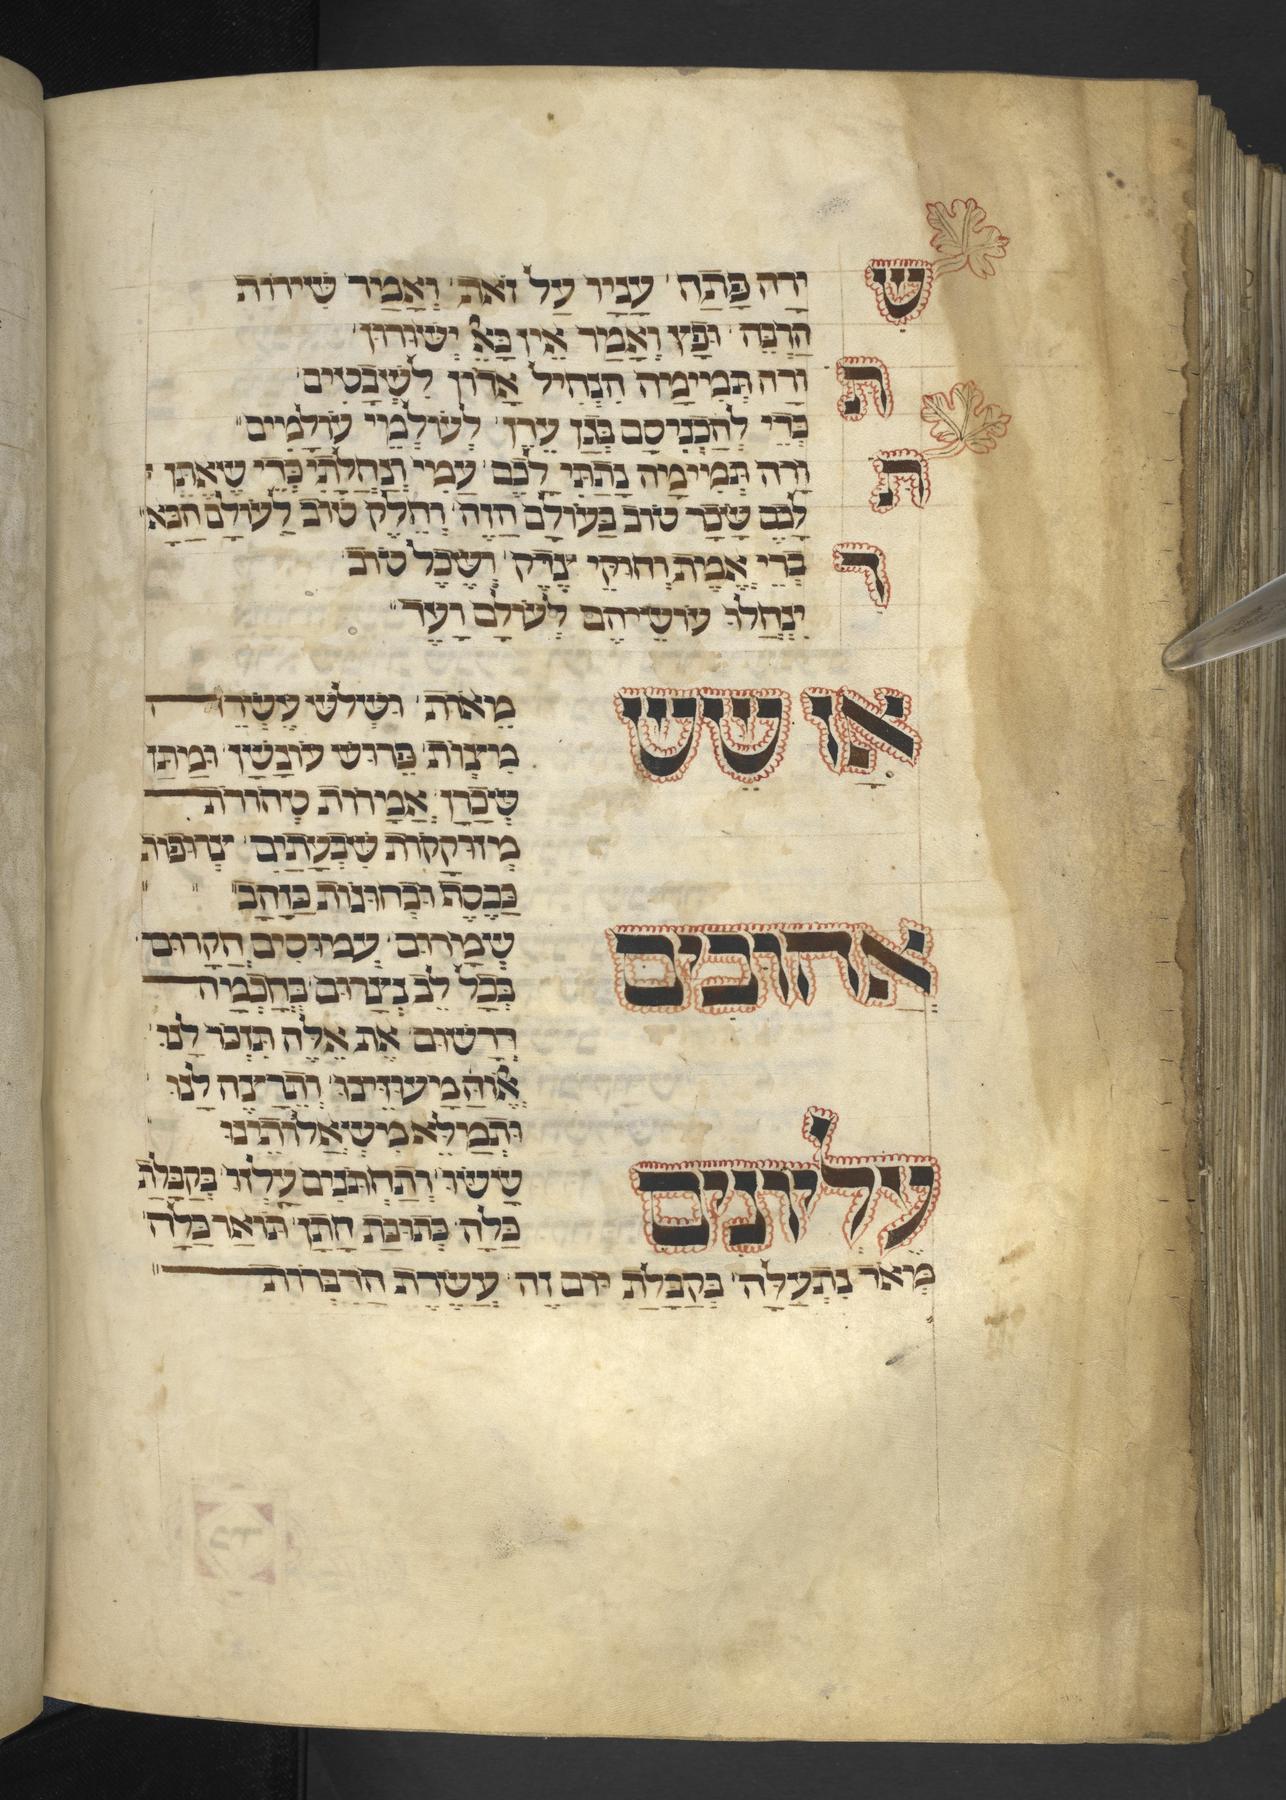 שִׁירָה פָּתַח עָנָיו עַל זֹאת וְאָמַר שִׁירוֹת
הַרְבֵּה וּפָץ וְאָמַר אֵין כָּאֵל יְשׁוּרוּן
תּוֹרָה תְּמִימָה הִנְחִיל אָדוֹן לִשְׁבָטִים
כְּדֵי לְהַכְנִיסָם בְּגַן עֵדֶן לְעוֹלְמֵי עוֹלָמִים
תּוֹרָה תְּמִימָה נָתַתִּי לָכֶם עַמִּי וְנַחֲלָתִי כְּדֵי שֶׁאֶתֵּן
לָכֶם שָׂכָר טוֹב בָּעוֹלָם הַזֶּה וְחֵלֶק טוֹב לָעוֹלָם הַבָּא
דִּבְרֵי אֱמֶת וְחוּקֵּי צֶדֶק וְשֵׂכֶל טוֹב
יִנְחֲלוּ עוֹשֵׂיהֶם לְעוֹלָם וָעֶד
אָז שֵׁשׁ מֵאוֹת וּשְׁלֹשׁ עֶשְׂרֵה
מִצְוֹת פֵּרוּשׁ עוֹנְשָׁן וּמַתַּן
שְׂכָרָן אֲמָרוֹת טְהוֹרֹת
מְזוּקָקוֹת שִׁבְעָתַיִם צְרוּפוֹת
כַּכֶּסֶף וּבְחוּנוֹת כַּזָּהָב
אֲהוּבִים שְׁמָרוּם עֲמוּסִים הֲקָרוּם
בְּכָל לֵב נְצָרוּם בְּחָכְמָה
דְּרָשׁוּם אֶת אֵלֶּה תִּזְכֹּר לָנוּ
אֱיָוהּ מָעוּזֵּינוּ וְתֵרָצֶה לָנוּ
וּתְמַלֵּא מִשְׁאֲלוֹתֵינוּ
עֶלְיוֹנִים שָׂשׂוּ וְתַחְתּוֹנִים עָלְזוּ בְּקַבָּלַת
כַּלָּה כְּתוּבַּת חָתָן תּוֹאַר כַּלָּה
מְאֹד נִתְעַלָּה בְּקַבָּלַת יוֹם זֶה עֲשֶׂרֶת הַדִּבְּרוֹת